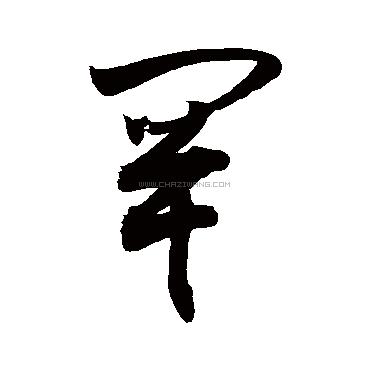 軍
WWW.CHAZIWANG.COM